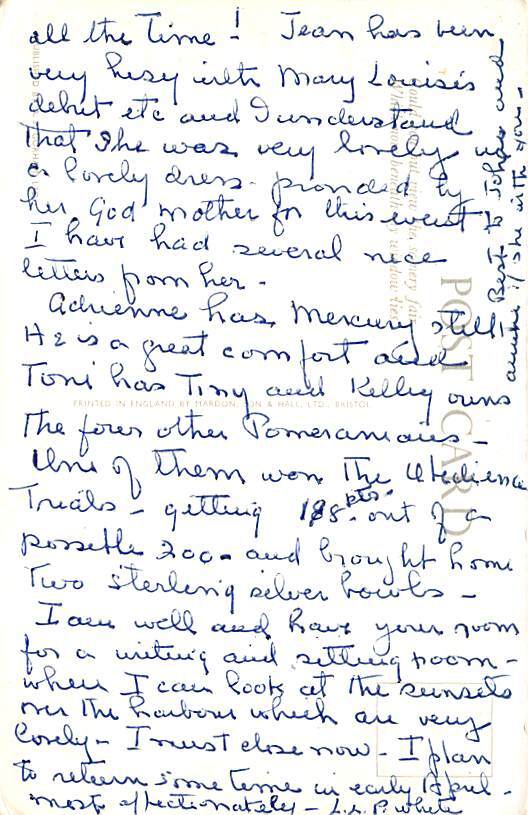 all the time! Jean has been
very busy with Mary Louise's
debut etc and I understand
that she was very lovely in
a lovely dress provided by
her God mother for this event
I have had several nice
letters from her -
Adrienne has Mercury still -
He is a great comfort and
Toni has Tiny and Kelley owns
PRINTED IN ENGLAND BY MARDON, SON & HALL, LTD., BRISTOL
The four other Pomeranians -
One of them won the Obedience
Trials - getting 198 pts. out of a
possible 200 - and brought home
two sterling silver bowls -
I am well and have your room
for a writing and sitting room -
where I can look at the sunsets
over the harbour which are very
lovely - I must close now - I plan
to return sometime in early April -
most affectionately - L.S.P. White
Best to John and
if she is with you -
POST CARD